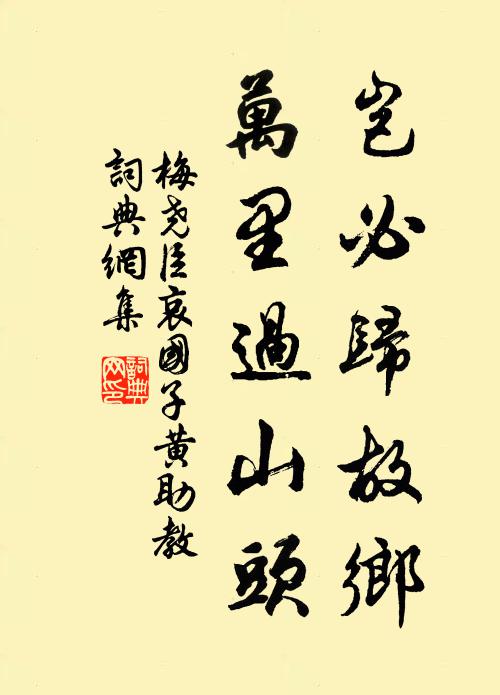 豈必歸故鄉
萬里過山頭
梅堯臣哀國子黃助教
詞典網集
詞典网印